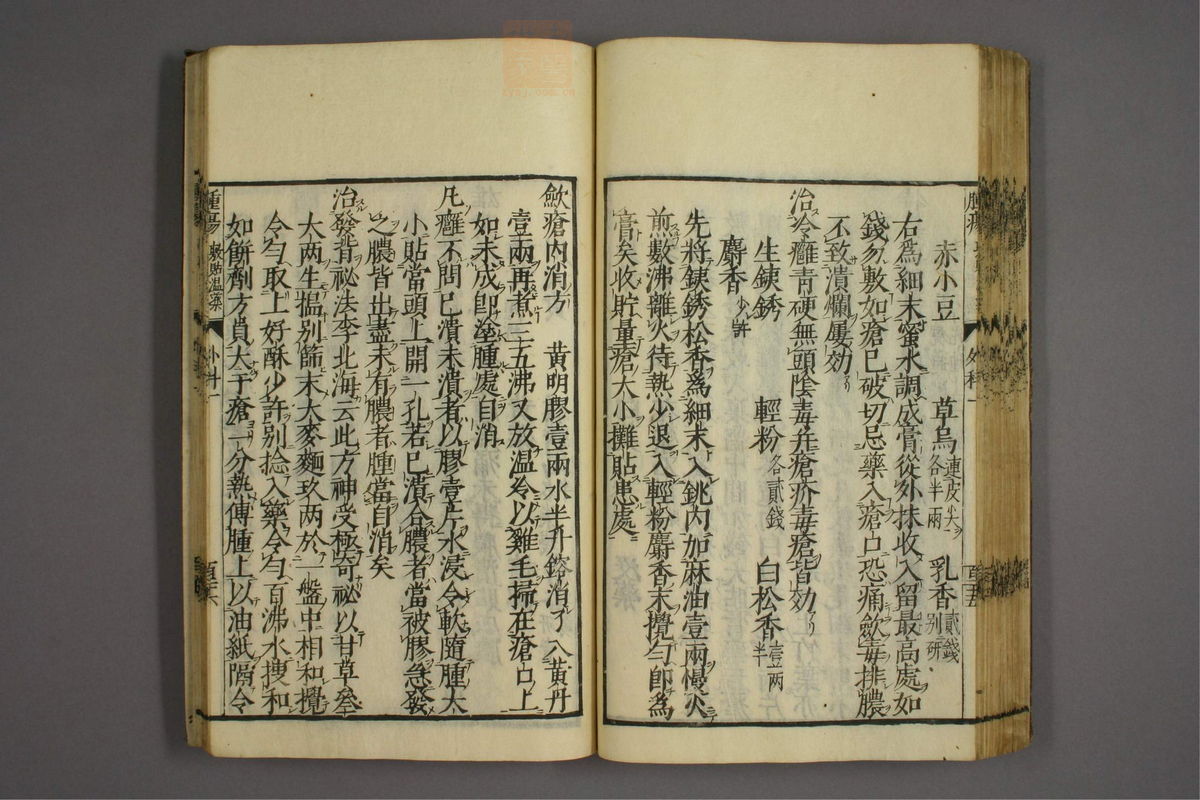 赤小豆 草烏連皮尖各半兩 乳香貳錢別研
右爲細末蜜水調成膏從外抹收入留最高處如
錢勿敷如瘡已破切忌藥入瘡口恐痛歛毒排膿
不致潰爛屢効
治冷癰青硬無頭陰毒并瘡疥毒瘡皆効
生鉄銹 輕粉各貳錢 白松香壹两半
麝香少許
先將鉄銹松香爲細末入銚內加麻油壹兩慢火
煎數沸離火待熱少退入輕粉麝香末攪匀即爲
膏矣收貯量瘡大小攤貼患處
歛瘡内消方 黄明膠壹兩水半升鎔消了入黄丹
壹兩再煮三五沸又放温冷以雞毛掃在瘡口上
如未成卽塗腫處自消
凡癰不問已潰未潰者以膠壹片水浸令軟隨腫大
小貼當頭上開一孔若已潰合膿者當被膠急發
之膿皆出盡未有膿者腫當自消矣
治發背祕法李北海云此方神受極奇祕以甘草叄
大两生搵别篩末大麥麵玖两於一盤中相和攪
令匀取上好酥少許别捻入藥令匀百沸水搜和
如餅劑方員大于瘡一分熱傅腫上以油紙隔令
腫瘍 敷貼温藥 外科一 百二六
腫瘍 外科一 百二五